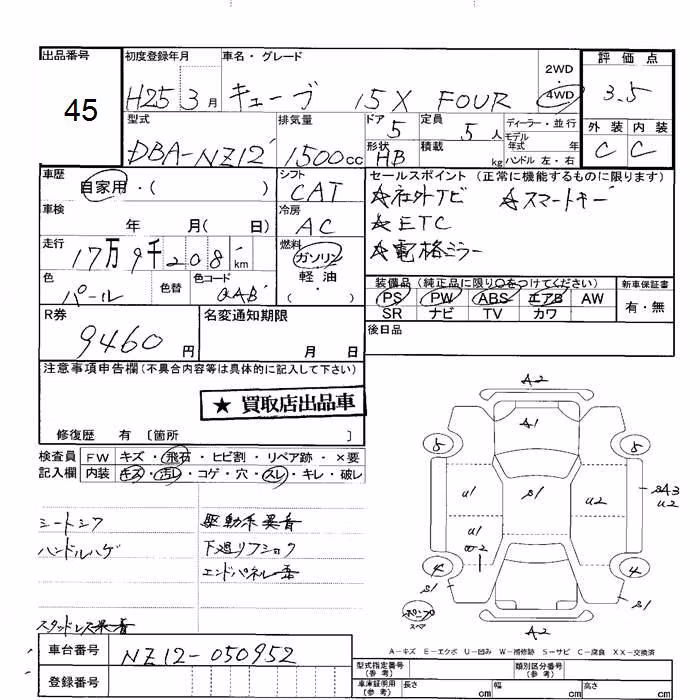 出品番号 初度登録年月 車名・グレード 2WD・4WD 評価点
45 H25 3月 キューブ 15X FOUR 3.5
型式 排気量 ドア 5 定員 5人 ディーラー・並行 外装 内装
DBA-NZ12 1500cc 形状 HB 積載 kg モデル年式 年 C C
ハンドル 左・右
車歴 シフト セールスポイント (正常に機能するものに限ります)
自家用・( ) CAT ★社外TV ★スマートキー
車検 年 月( 日) 冷房 AC ★ETC
走行 17万9千208km 燃料 ガソリン・軽油・( ) ★電格ミラー
色 パール 色替 色コード QAB
装備品 (純正品に限り○をつけてください) 新車保証書
PS PW ABS エアB AW 有・無
SR ナビ TV カワ
R券 9460円 名変通知期限 月 日 後日品
注意事項申告欄 (不具合内容等は具体的に記入して下さい)
★ 買取店出品車
修復歴 有 〔箇所 〕
検査員 FW キズ・飛石・ヒビ割・リペア跡・×要
記入欄 内装 キズ・汚レ・コゲ・穴・スレ・キレ・破レ
シートシワ 駆動系異音
ハンドルハゲ 下廻りフショク
エンドパネル一歪
スタッドレス異音
A2
A1
5 5
U1 S1 U2 SA3 U2
U1
W2
4 4
S1 S1
スペア
A2
A-キズ E-エクボ U-凹み W-補修跡 S-サビ C-腐食 XX-交換済
車台番号 NZ12-050952
登録番号
型式指定番号 (参考) 類別区分番号 (参考)
車庫証明用 (参考) 長さ cm 幅 cm 高さ cm